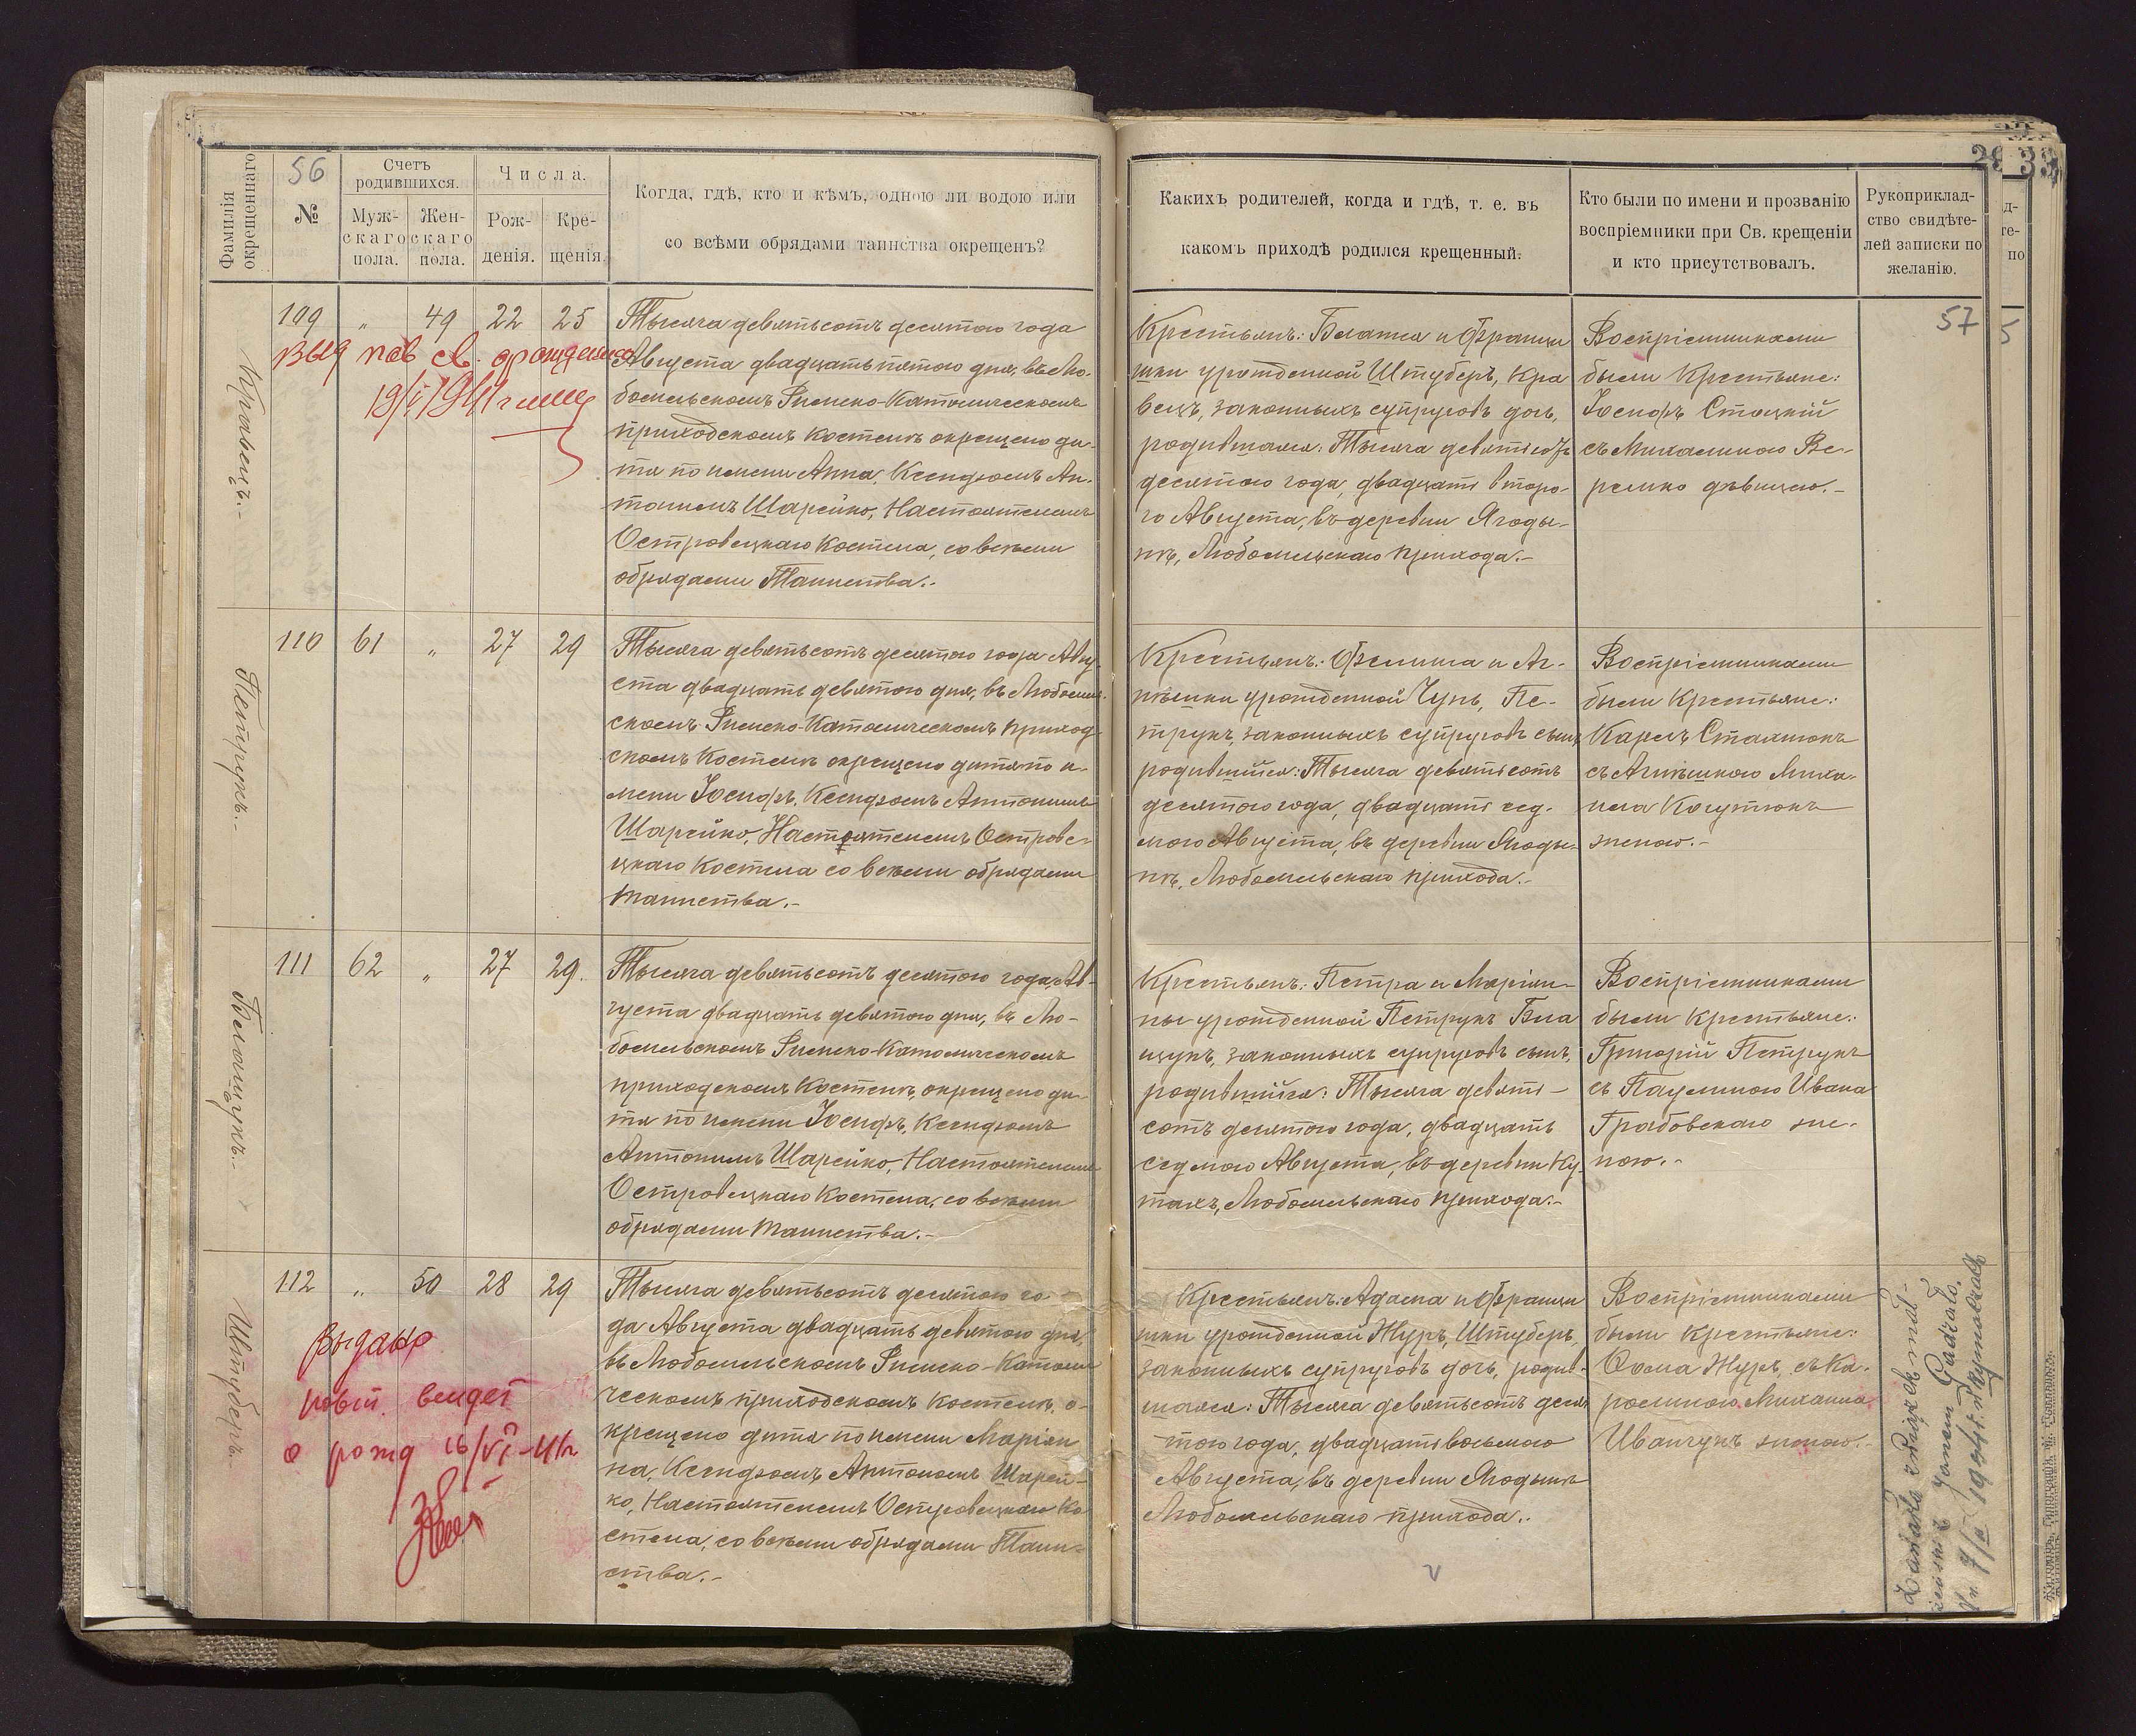 Фамилія окрещеннаго
56
№
Счетъ родившихся.
Муж-
скаго
пола.
Жен-
скаго
пола.
Числа.
Рож-
денія.
Кре-
щенія.
Когда, гдѣ, кто и кѣмъ, одною ли водою или
со всѣми обрядами таинства окрещенъ?
Какихъ родителей, когда и гдѣ, т. е. въ
какомъ приходѣ родился крещенный.
Кто были по имени и прозванію
воспріемники при Св. крещеніи
и кто присутствовалъ.
Рукоприклад-
ство свидѣте-
лей записки по
желанію.
57
Кравецъ.-
109 „ 49 22 25
Тысяча девятьсотъ десятого года
Августа двадцать пятого дня, въ Лю-
бомльскомъ Римско-Католическомъ
приходскомъ костелѣ окрещено ди-
тя по имени Анна, Ксендзомъ Ан-
тонимъ Шарейко, Настоятелемъ
Островецкаго Костела, со всѣми
обрядами Таинства.-
Крестьянъ: Блажея и Францы
шки урожденной Штуберъ, Кра
вецъ, законныхъ супруговъ дочь,
родившаяся: Тысяча девятьсотъ
десятого года, двадцать второ-
го Августа, въ деревни Ягоды-
нѣ, Любомльскаго прихода.-
Воспріемниками
были Крестьяне:
Іосифъ Стоцкій
съ Михалиною Ве-
ремко дѣвицею.-
Петрукъ.-
110 61 „ 27 29
Тысяча девятьсотъ десятого года Авгу-
ста двадцать девятого дня, въ Любомль-
скомъ Римско-Католическомъ приход-
скомъ Костелѣ окрещено дитя по и-
мени Іосифъ, Ксендзомъ Антонимъ
Шарейко, Настоятелемъ Острове-
цкаго Костела со всѣми обрядами
таинства.-
Крестьянъ: Феликса и Аг-
нѣшки урожденной Чунь, Пе-
трукъ, законныхъ супруговъ сынъ
родившійся: Тысяча девятьсотъ
десятого года, двадцать сед-
мого Августа, въ деревни Ягоды-
нѣ, Любомльскаго прихода.-
Воспріемниками
были Крестьяне:
Карлъ Стахнюкъ
съ Агнѣшкою Миха-
ила Когутюкъ
женою.-
111 62 „ 27 29.
Тысяча девятьсотъ десятого года, Ав-
густа двадцать девятого дня, въ Лю-
бомльскомъ Римско-Католическомъ
приходскомъ Костелѣ, окрещено ди-
тя по имени Іосифъ, Ксендзомъ
Антонимъ Шарейко, Настоятелемъ
Островецкаго Костела, со всѣми
обрядами таинства.-
Крестьянъ: Петра и Маріян-
ны урожденной Петрукъ Бла
щукъ, законныхъ супруговъ сынъ,
родившійся: Тысяча девять-
сотъ десятого года, двадцать
седмого Августа, въ деревни Ку-
тахъ, Любомльскаго прихода.-
Воспріемниками
были крестьяне:
Григорій Петрукъ
съ Паулиною Ивана
Грабовскаго же-
ною.-
Штуберъ.
112 „ 50 28 29
Выдано
о рожд 16/VI-41 г
Тысяча девятьсотъ десятого го-
да Августа двадцать девятого дня,
въ Любомльскомъ Римско-Католи
ческомъ приходскомъ костелѣ, о-
крещено дитя по имени Маріян
на, Ксендзомъ Антонимъ Шарей-
ко, Настоятелемъ Островецкаго Ко
стела, со всѣми обрядами Таин-
ства.-
Крестьянъ: Адама и Францы
шки урожденной Журъ, Штуберъ,
законныхъ супруговъ дочь, родив-
шаяся: Тысяча девятьсотъ деся
того года, двадцать восьмого
Августа, въ деревни Ягодынѣ
Любомльскаго прихода.-
Воспріемниками
были крестьяне:
Ѳома Журъ, съ Ка-
ролиною Михаила
Иванчукъ женою.-